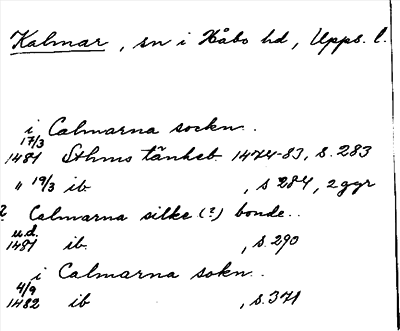 Kalmar, sn i Håbo hd, Upps. l.
i Calmarna sockn..
17/3
1481 Sthms tänkeb 1474-83, s. 283
" 19/3 ib , s 284, 2 ggr
? Calmarna silke (?) bonde..
u.d.
1481 ib. , s. 290
i Calmarna sokn..
4/9
1482 ib , s. 371